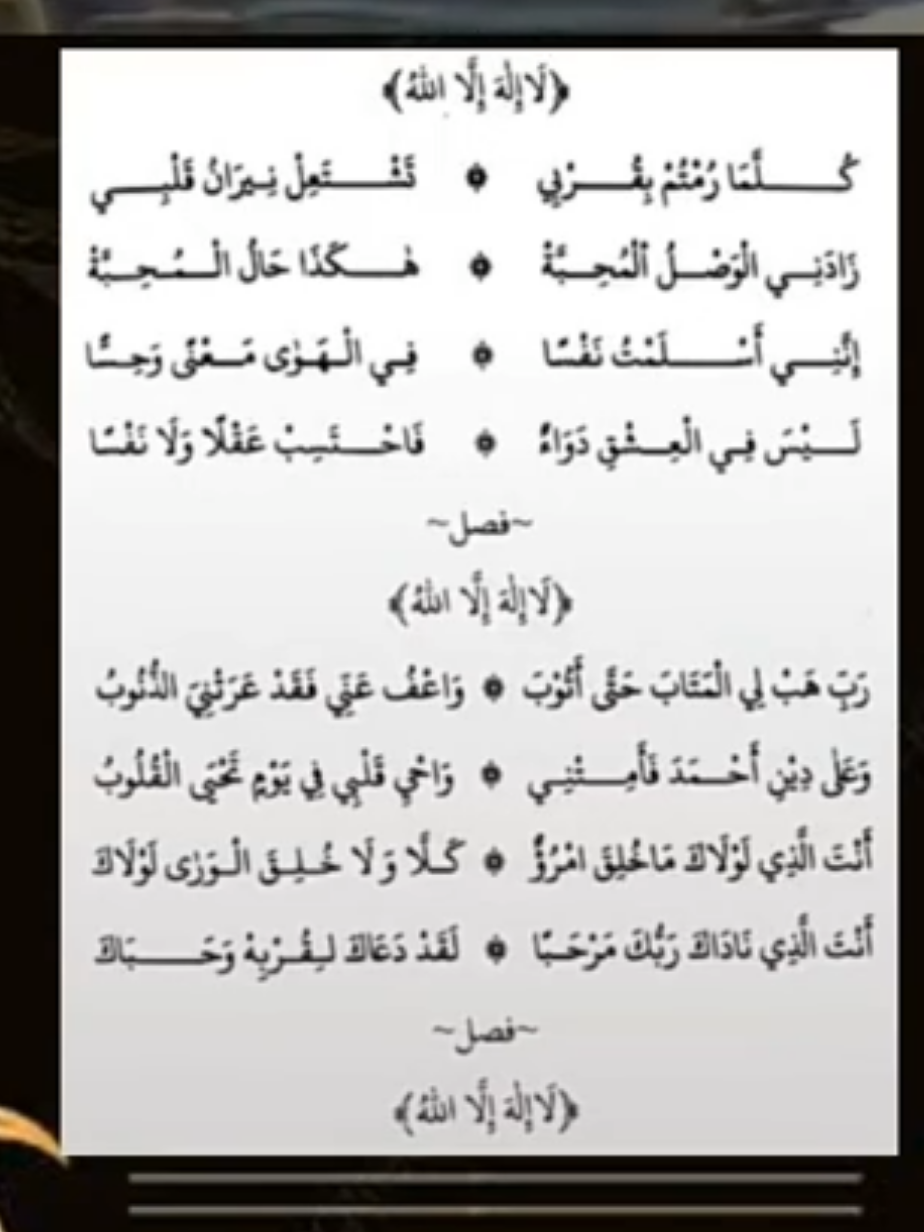 ﴿لَا إِلٰهَ إِلَّا اللّٰهُ﴾
كُلَّمَا رُمْتُمْ بِقُرْبِي ۞ تَشْتَعِلْ نِيرَانُ قَلْبِي
زَادَنِي الْوَصْلُ الْمُحِبَّةْ ۞ هٰكَذَا حَالُ الْمُحِبَّةْ
إِنَّنِي أَسْلَمْتُ نَفْسًا ۞ فِي الْهَوٰى مَعْنًى وَحِسًّا
لَيْسَ فِي الْعِشْقِ دَوَاءٌ ۞ فَاحْتَسِبْ عَقْلًا وَلَا نَفْسًا
~فصل~
﴿لَا إِلٰهَ إِلَّا اللّٰهُ﴾
رَبِّ هَبْ لِي الْمَتَابَ حَتَّى أَتُوْبَ ۞ وَاعْفُ عَنِّي فَقَدْ عَرَتْنِيَ الذُّنُوبُ
وَعَلٰى دِيْنِ أَحْمَدَ فَأَمِتْنِي ۞ وَاحْيِ قَلْبِي فِي يَوْمِ تَحْيَى الْقُلُوبُ
أَنْتَ الَّذِي لَوْلَاكَ مَاخُلِقَ امْرُؤٌ ۞ كَلَّا وَلَا خُلِقَ الْوَرٰى لَوْلَاكَ
أَنْتَ الَّذِي نَادَاكَ رَبُّكَ مَرْحَبًا ۞ لَقَدْ دَعَاكَ لِقُرْبِهْ وَحَبَاكَ
~فصل~
﴿لَا إِلٰهَ إِلَّا اللّٰهُ﴾